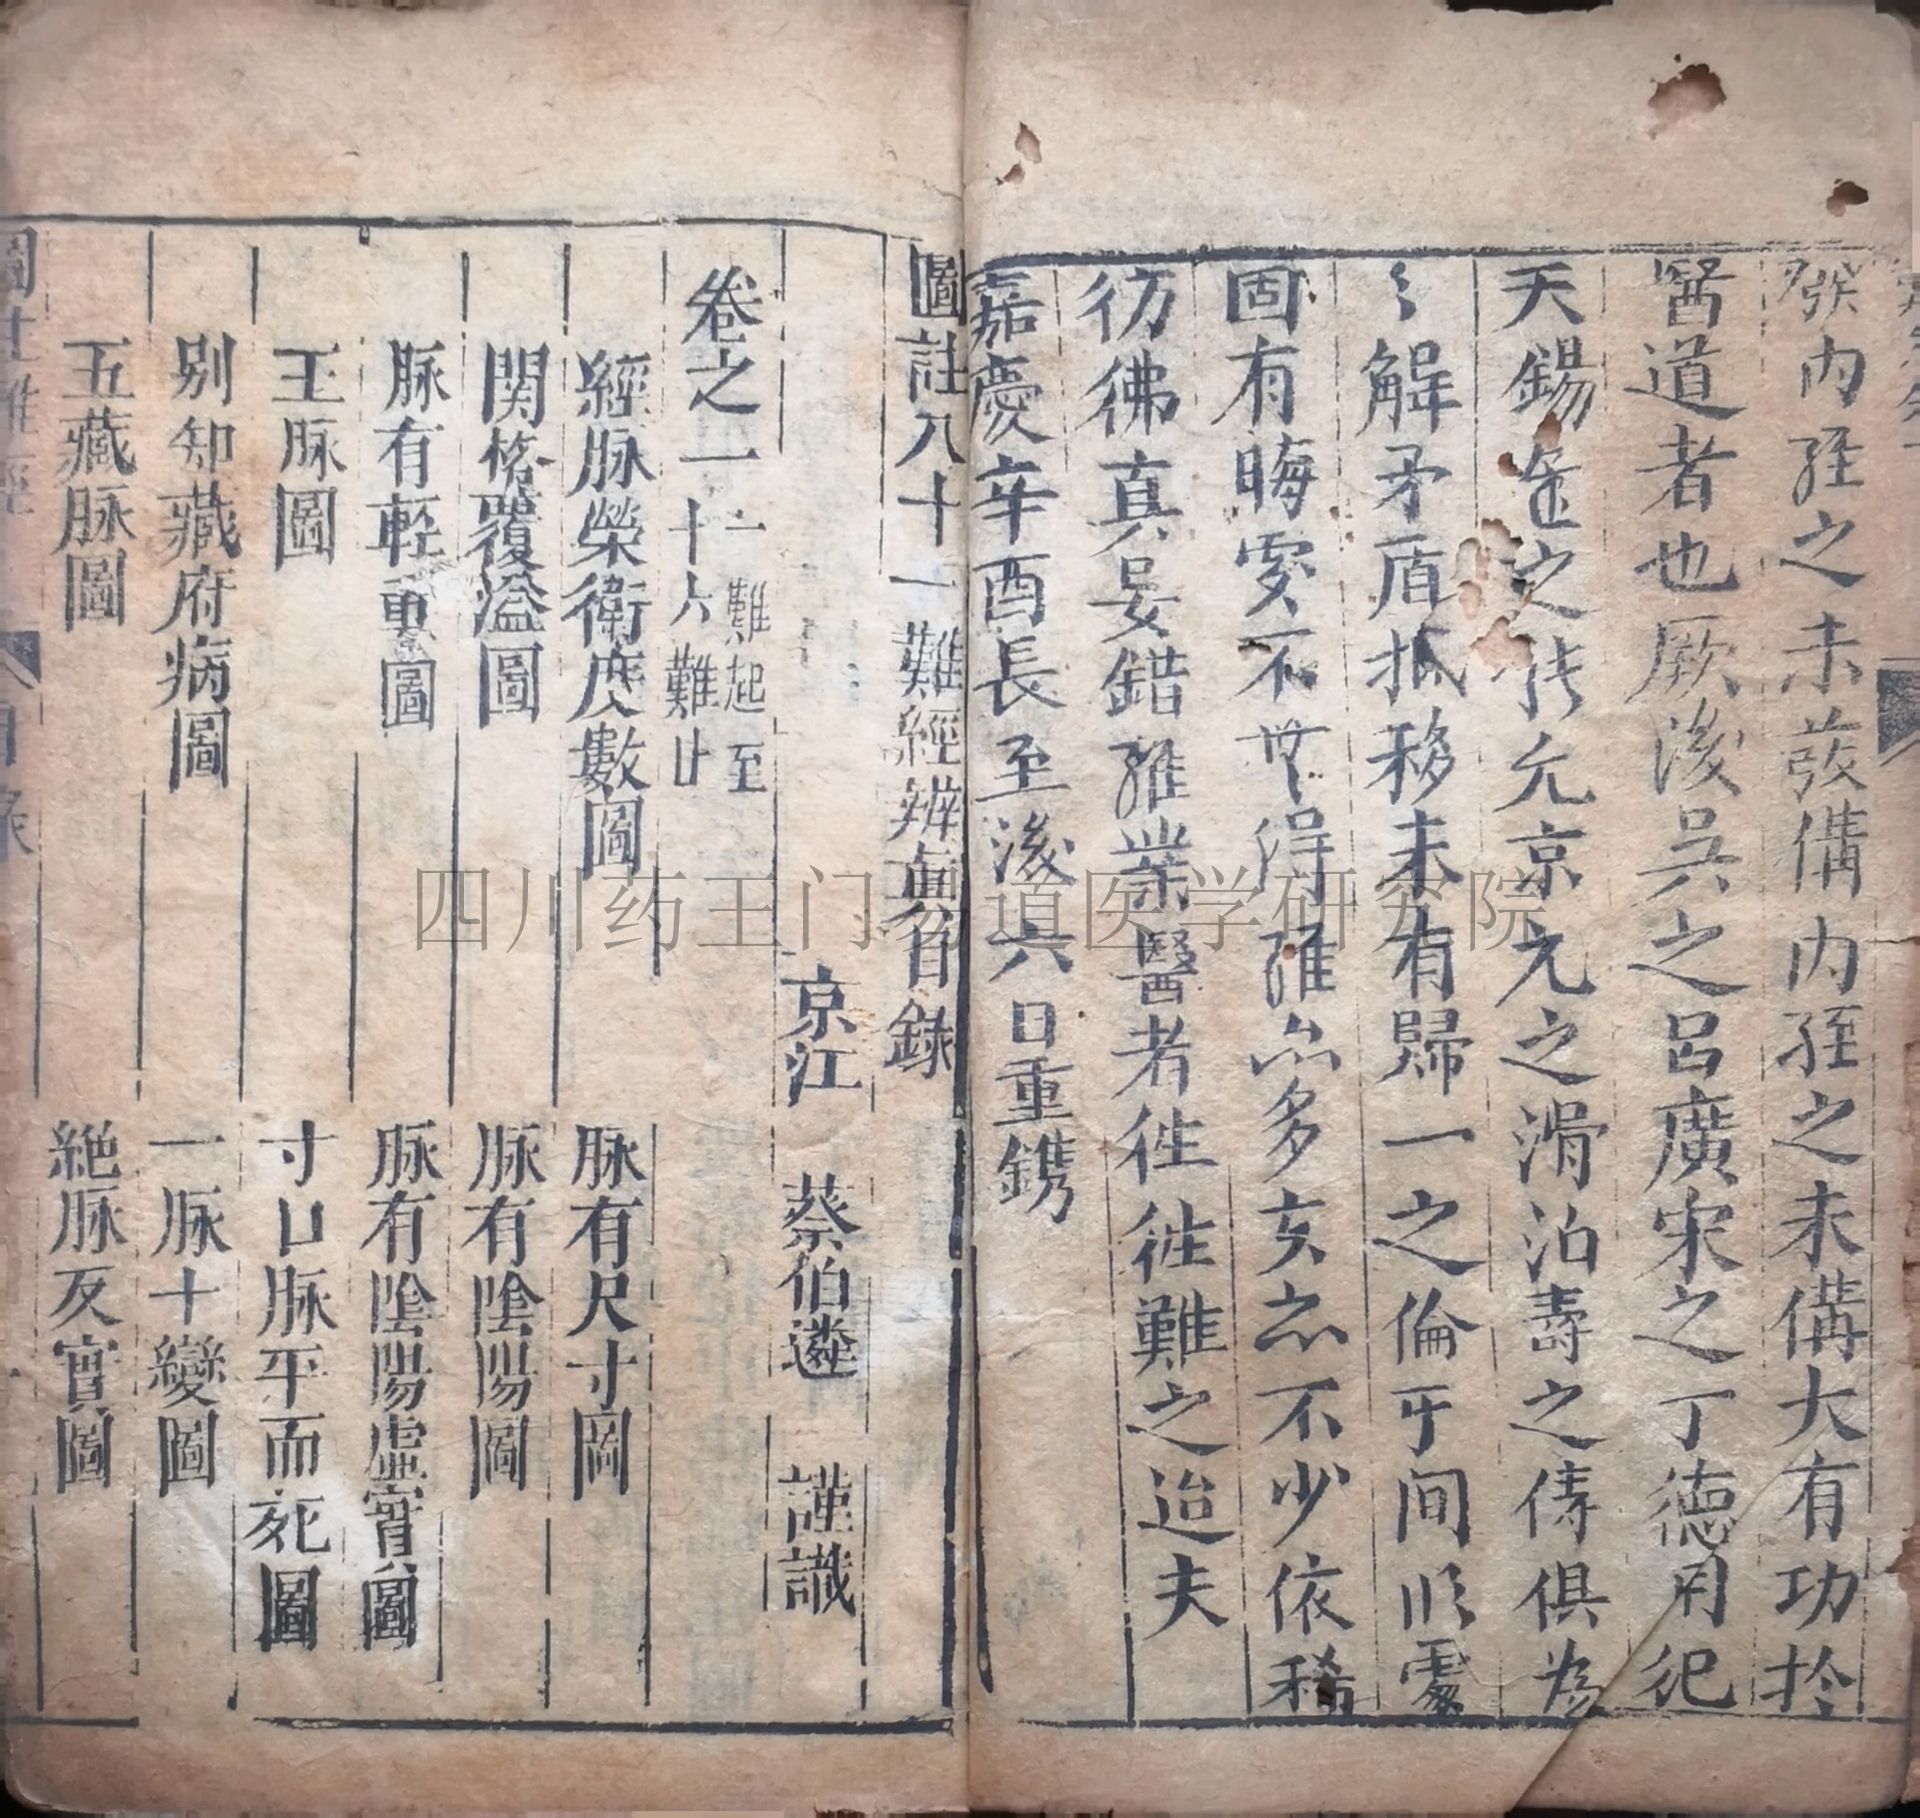 發內經之未發備內經之未備大有功於
醫道者也厥後吳之呂廣宋之丁德用祀
天錫金之元京元之滑泊壽之俦俱為
〻解矛盾抵移未有歸一之倫于间順處
固有晦處不無得雖亦多玄亦不少依稀
彷彿真妄錯雜業醫者徃徃難之迨夫
嘉慶辛酉長至後六日重鐫
圖註八十一難經辨真目錄
京江 蔡伯遴 謹識
卷之一 一難起至十六難止
經脉榮衛度數圖 脉有尺寸圖
関格覆溢圖 脉有陰陽圖
脉有輕重圖 脉有陰陽虛實圖
王脉圖 寸口脉平而死圖
別知藏府病圖 一脉十變圖
五藏脉圖 絶脉反實圖
四川药王门易道医学研究院